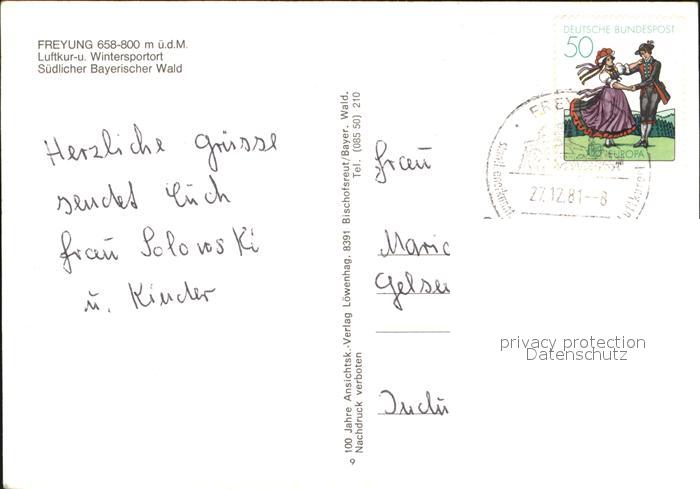 FREYUNG 658-800 m ü.d.M.
Luftkur-u. Wintersportort
Südlicher Bayerischer Wald
Herzliche Grüsse
sendet Euch
Frau Solovski
u. Kinder
100 Jahre Ansichtsk.-Verlag Löwenhag. 8391 Bischofsreut/Bayer. Wald.
Nachdruck verboten
Tel. (085 50) 210
9
DEUTSCHE BUNDESPOST
50
EUROPA
FREY
27.12.81--8
Frau
Maric
Gelsen
Indu
privacy protection
Datenschutz